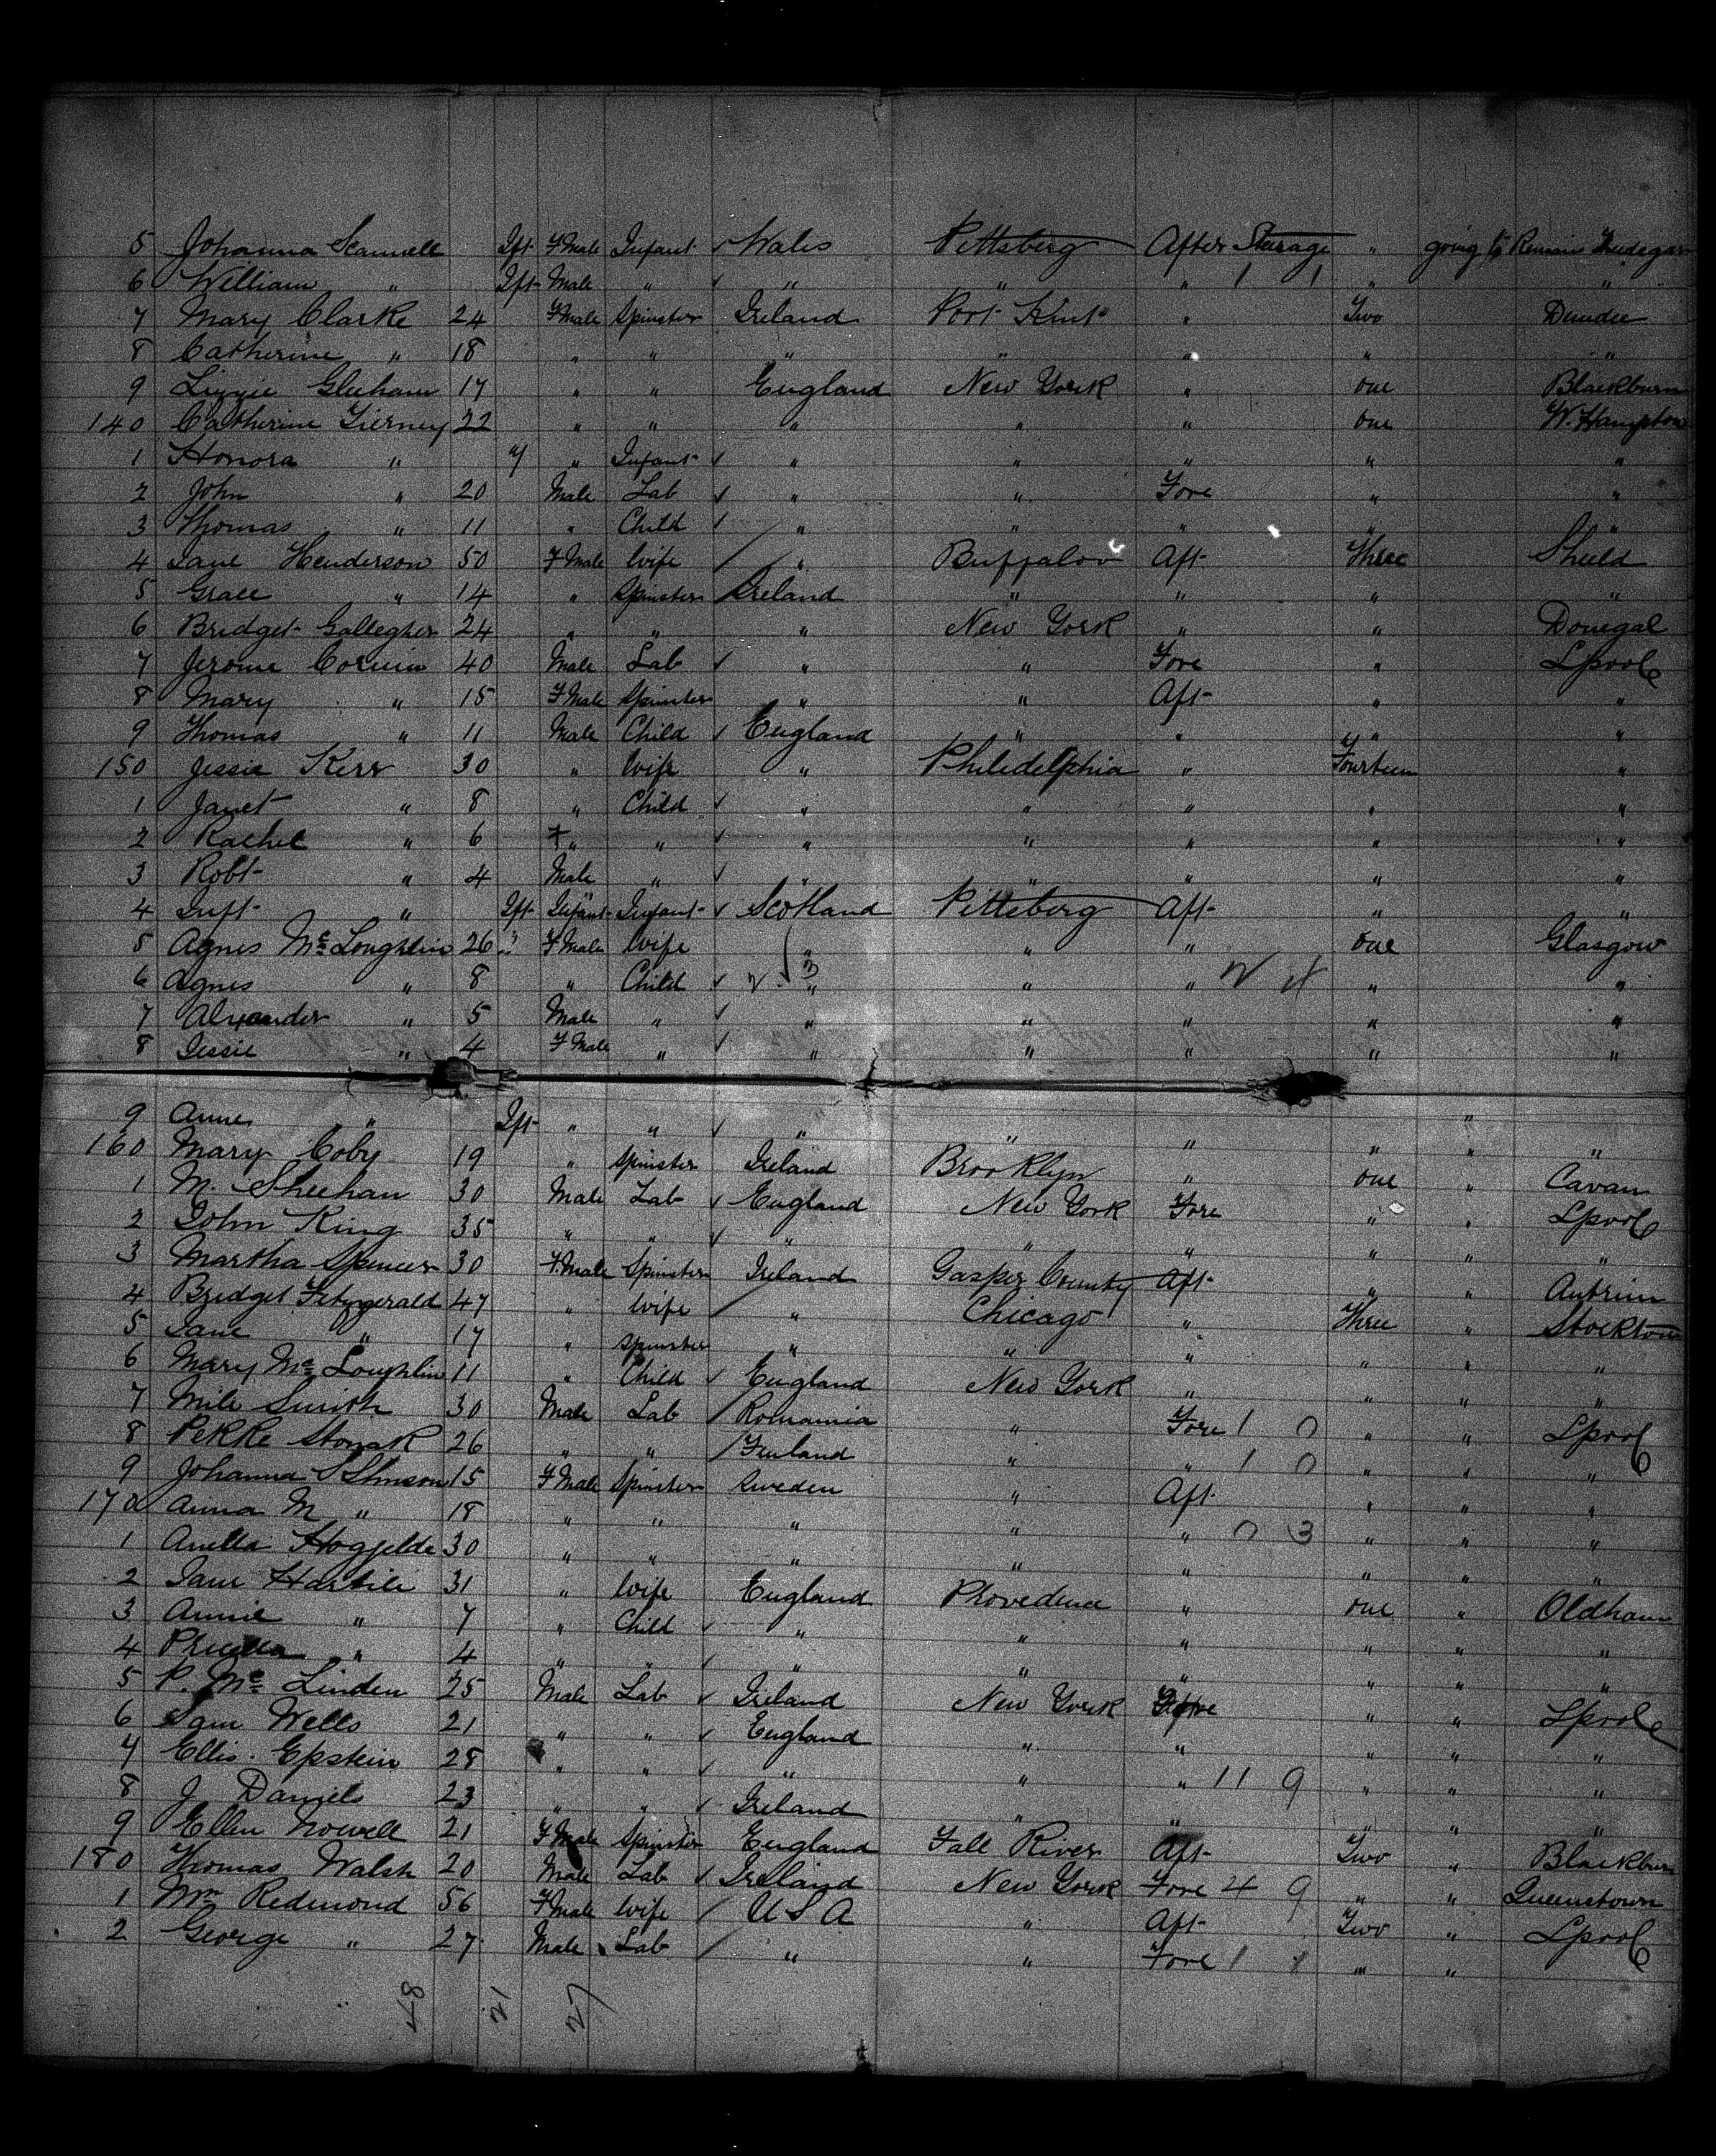 5 Johanna Scannell Ift F Male Infant ✓ Wales Pittsberg After Stearage " going to Remain Tredegar
6 William " Ift Male " ✓ " " " 1 1 " "
7 Mary Clarke 24 F Male Spinster Ireland Port Kent " Two Dundee
8 Catherine " 18 " " " " " " "
9 Lizzie Gleeham 17 " " England New York " one Blackburn
140 Catherine Tierney 22 " " " " " one W. Hampton
1 Honora " " Infant ✓ " " " " "
2 John " 20 Male Lab ✓ " " Fore " "
3 Thomas " 11 " Child ✓ " " " " "
4 Jane Henderson 50 F Male Wife / " Buffalow Aft Three Shield
5 Grace " 14 " Spinster Ireland " " " "
6 Bridget Gallegher 24 " " " New York " " Donegal
7 Jerome 40 Male Lab ✓ " " Fore " Lpool
8 Mary " 15 F Male Spinster " " Aft " "
9 Thomas " 11 Male Child ✓ England " " " "
150 Jessie Kerr 30 " Wife " Philedelphia " Fourteen "
1 Janet " 8 " Child ✓ " " " " "
2 Rachel " 6 F " " ✓ " " " " "
3 Robt " 4 Male " ✓ " " " " "
4 Inft " Ift Infant Infant ✓ Scotland Pitteberg Aft " "
5 Agnes Mc Loughlin 26 F Male Wife " " " one Glasgow
6 Agnes " 8 " Child ✓ " " " " "
7 Alxander " 5 Male " ✓ " " " " "
8 Jessie " 4 F Male " ✓ " " " " "
9 Anne " Ift " " ✓ " " " " " "
160 Mary Coby 19 " Spinster Ireland Brooklyn " one " Cavan
1 M. Sheehan 30 Male Lab ✓ England New York Fore " " Lpool
2 John King 35 " " ✓ " " " " " "
3 Martha Spencer 30 F Male Spinster Ireland Gasper County Aft " " Antrim
4 Bridget Fitzgerald 47 " Wife / " Chicago " Three " Stockton
5 Jane " 17 " Spinster " " " " " "
6 Mary Mc Loughlin 11 " Child ✓ England New York " " " "
7 Mile Smith 30 Male Lab / Romania " Fore 1 0 " " Lpool
8 Pekke Stonak 26 " " / Finland " " 1 0 " " "
9 Johanna 15 F Male Spinster Sweden " Aft " " "
170 Anna M " 18 " " " " " 0 3 " " "
1 Anella Hogjelde 30 " " " " " " " "
2 Jane Hartile 31 " Wife England Provedence " one " Oldham
3 Annie " 7 " Child ✓ " " " " " "
4 " 4 " " ✓ " " " " " "
5 P. Mc Linden 25 Male Lab ✓ Ireland New York Fore " " Lpool
6 Sam Wells 21 " " ✓ England " " " " "
7 Ellis Epstein 28 " " ✓ " " " 11 9 " " "
8 J Daniels 23 " " ✓ Ireland " " " " "
9 Ellen Nowell 21 F Male Spinster England Fall River Aft Two " Blackburn
180 Thomas Walsh 20 Male Lab ✓ Ireland New York Fore 4 9 " " Queenstown
1 Mrs Redmond 56 F Male Wife / U S A " Aft Two " Lpool
2 George " 27 Male Lab / " " Fore 1 1 " "
48 21 27